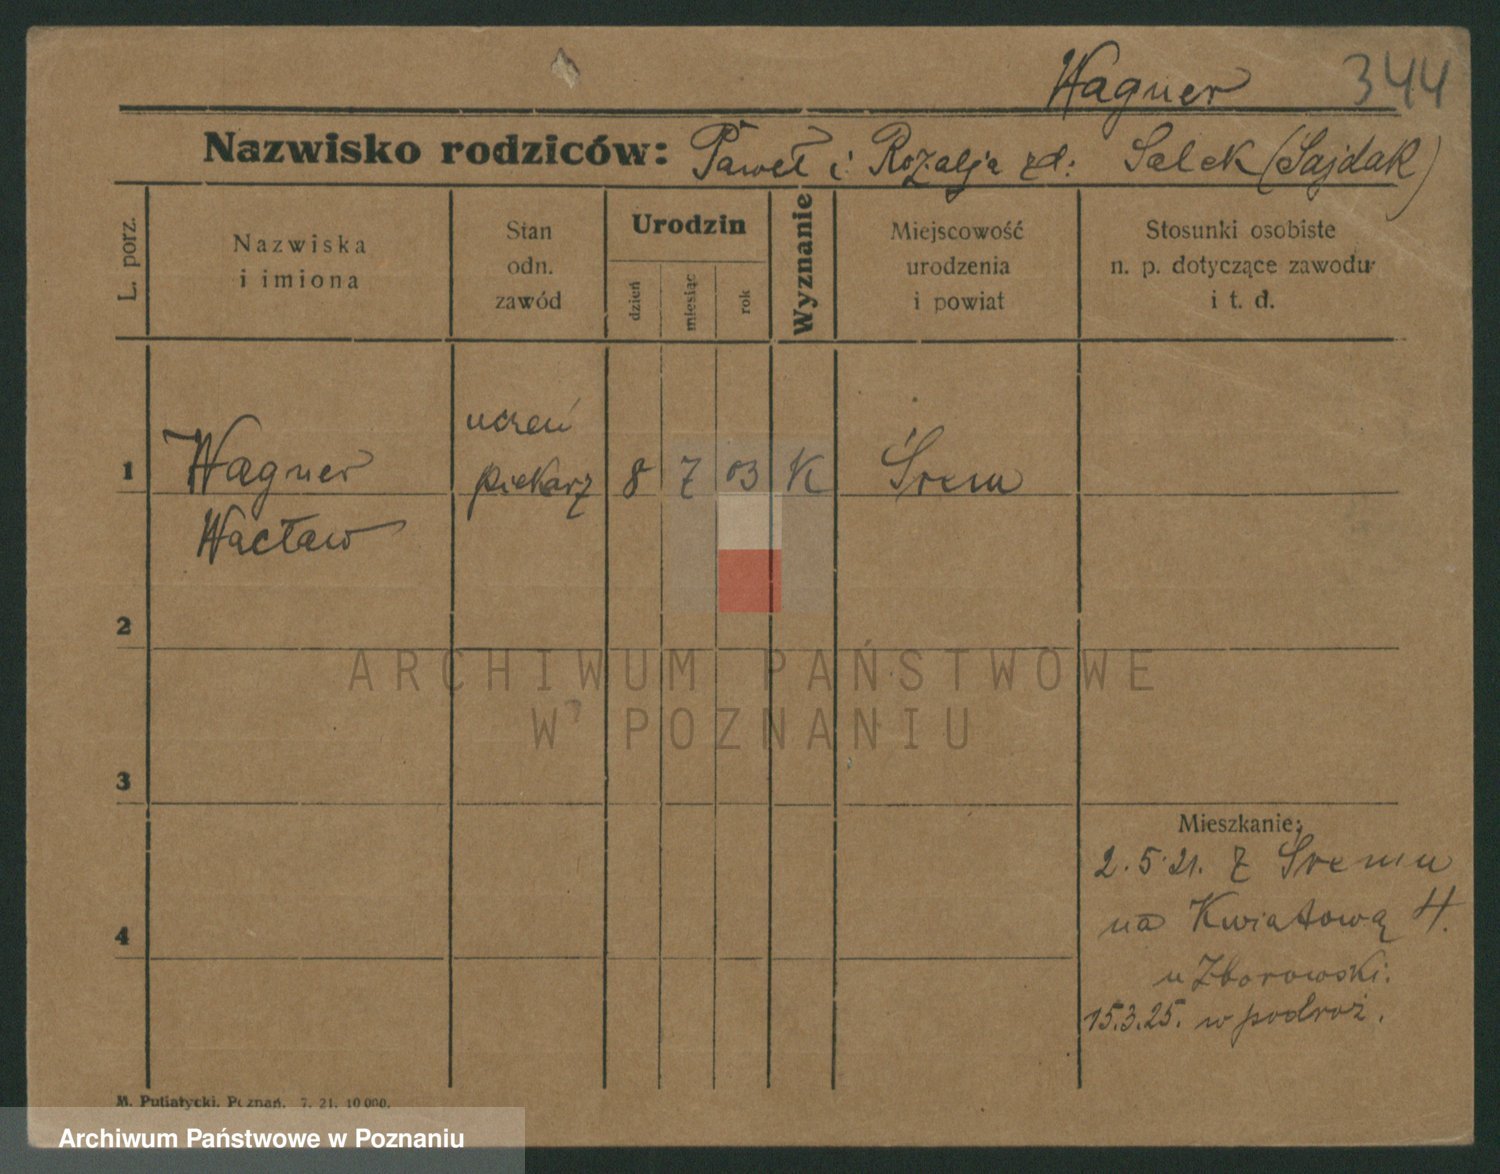 Wagner 344
Nazwisko rodziców: Paweł i Rozalja zd: Salek (Sajdak)
L. porz.
Nazwiska
i imiona
Stan
odn.
zawód
Urodzin
dzień
miesiąc
rok
Wyznanie
Miejscowość
urodzenia
i powiat
Stosunki osobiste
n. p. dotyczące zawodu
i t. d.
uczeń
1 Wagner piekarz 8 7 03 K Śrem
Wacław
2
ARCHIWUM PAŃSTWOWE
W POZNANIU
3
Mieszkanie:
2.5.21. z Śremu
na Kwiatową 4.
u Zborowski.
15.3.25. w podróż.
4
M. Putiatycki, Poznań. 7. 21. 10 000.
Archiwum Państwowe w Poznaniu